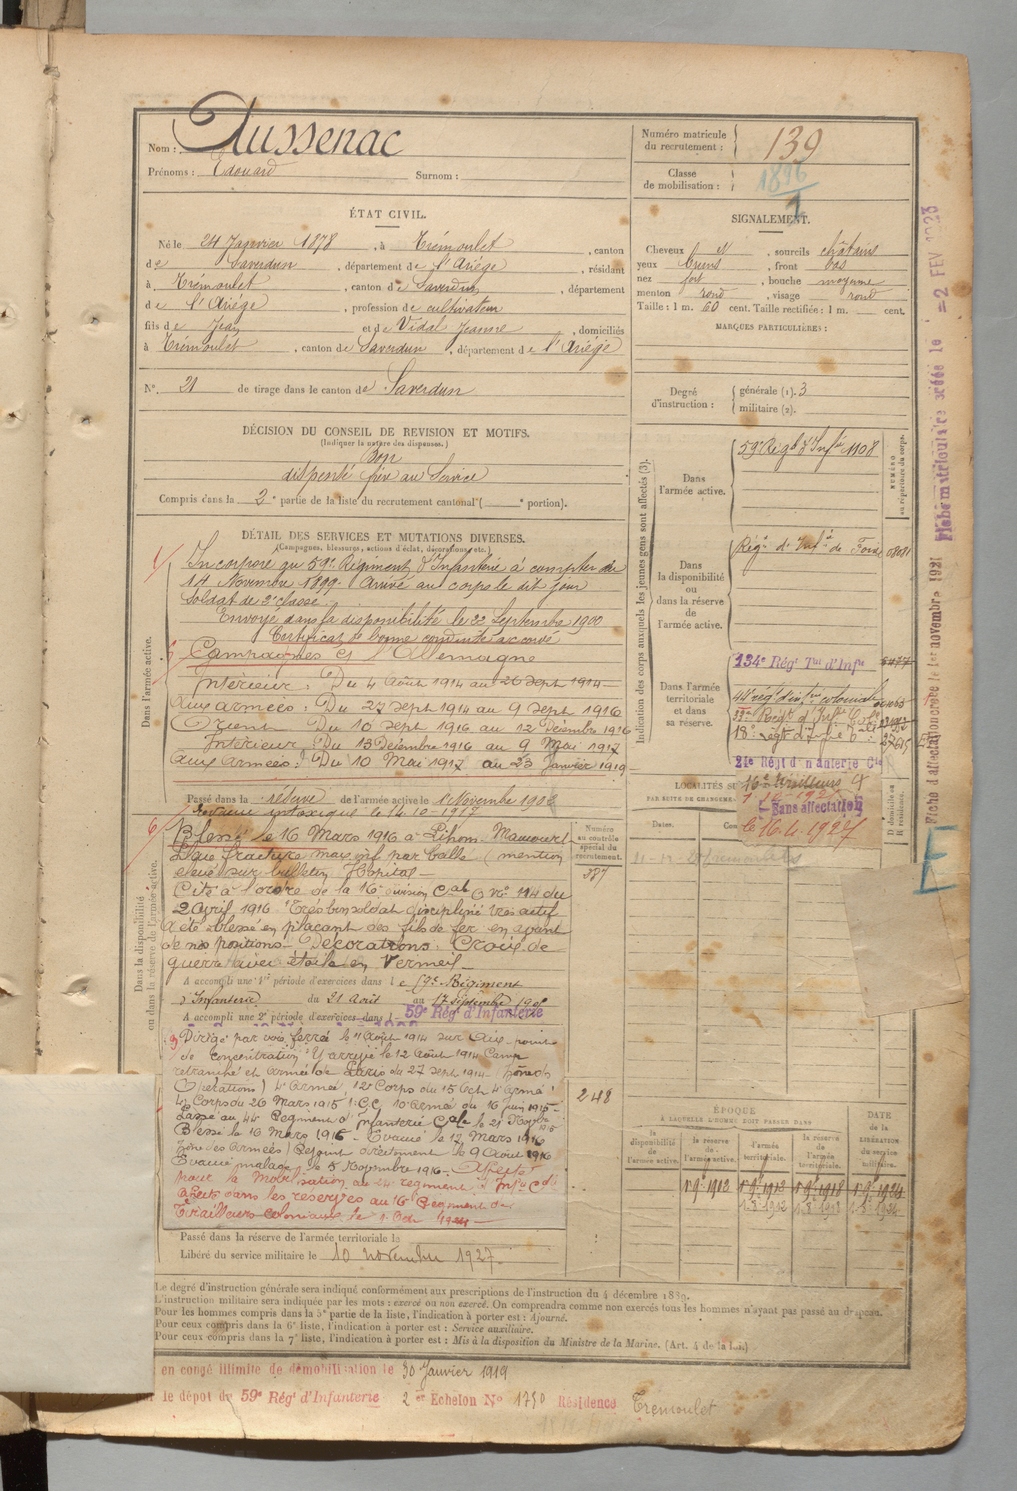 Nom : Aussenac
Prénoms : Edouard Surnom :
Numéro matricule du recrutement : 139
Classe de mobilisation : 1896
ÉTAT CIVIL.
Né le 24 Janvier 1878, à Trémoulet, canton
de Saverdun, département de l'Ariége, résidant
à Trémoulet, canton de Saverdun, département
de l'Ariége, profession de cultivateur
fils de Jean et de Vidal Jeanne, domiciliés
à Trémoulet, canton de Saverdun, département de l'Ariége
N° 21 de tirage dans le canton de Saverdun
SIGNALEMENT.
Cheveux N, sourcils châtains
yeux bruns, front bas
nez fort, bouche moyenne
menton rond, visage rond
Taille : 1 m. 60 cent. Taille rectifiée : 1 m. cent.
MARQUES PARTICULIÈRES :
Degré d'instruction : générale (1). 3
militaire (2).
DÉCISION DU CONSEIL DE REVISION ET MOTIFS.
(Indiquer la nature des dispenses.)
Bon
dispensé frère au Service
Compris dans la 2e partie de la liste du recrutement cantonal (e portion).
DÉTAIL DES SERVICES ET MUTATIONS DIVERSES.
(Campagnes, blessures, actions d'éclat, décorations, etc.)
Dans l'armée active.
Incorporé au 59e Régiment d'Infanterie à compter du
14 Novembre 1899. Arrivé au corps le dit jour
Soldat de 2e classe.
Envoyé dans la disponibilité le 22 Septembre 1900
Certificat de bonne conduite accordé
Campagnes cs l'Allemagne
Intérieur : Du 4 Août 1914 au 26 Sept 1914
Aux armées : Du 27 Sept 1914 au 9 Sept 1916
Orient Du 10 Sept 1916 au 12 Décembre 1916
Intérieur Du 13 Décembre 1916 au 9 Mai 1917
Aux Armées : Du 10 Mai 1917 au 23 Janvier 1919
Passé dans la réserve de l'armée active le 1 Novembre 1902
intoxiqué le 14.10.1917
Dans la disponibilité ou dans la réserve de l'armée active.
Blessé le 16 Mars 1916 à Lihons
fracture par balle (mention
relevé sur bulletin Hopital
Cité à l'ordre de la 16e division Cale O No 114 du
2 Avril 1916 Très bon soldat discipliné très actif
A été blessé en plaçant des fils de fer en avant
de nos positions. Décorations : Croix de
guerre avec étoile en Vermeil
A accompli une 1re période d'exercices dans le 59e Régiment
d'Infanterie du 21 Avril au
A accompli une 2e période d'exercices dans l 59e Régt d'Infanterie
Dirigé par voie ferrée le 11 Août 1914 sur Aux. point
de concentration. Y arrivé le 12 Août 1914 Camp
retranché et Armée de Paris du 27 Sept 1914 (Zône des
Opérations) 4e Armée 12e Corps du 15 Oct 4e Armée
4e Corps du 26 Mars 1915 10e Armée du 16 Juin 1915
Passé au 44e Régiment d'Infanterie Cale le 21 Novbre 1915
Blessé le 16 Mars 1916 Evacué le 17 Mars 1916
Zône des Armées) Rejoint directement le 9 Août 1916
Evacué malade le 5 Novembre 1916 Affecté
pour la mobilisation au 24e régiment d'Infie Cale
Affecté dans les réserves au 16e Régiment de
Tirailleurs coloniaux le 1 Octe 1921
Passé dans la réserve de l'armée territoriale le
Libéré du service militaire le 10 novembre 1927.
Numéro au contrôle spécial du recrutement.
387
248
Indication des corps auxquels les jeunes gens sont affectés (3).
NUMÉRO au répertoire du corps.
Dans l'armée active.
59e Régt d'Infie 1108
Dans la disponibilité ou dans la réserve de l'armée active.
Régt d'Infie de Foix
Dans l'armée territoriale et dans sa réserve.
134e Régt Tal d'Infie
44e régt d'infie coloniale
33e Régt d'Infie Cole
18e régt d'Infie Cale
24e Régt d'Infanterie Cle
16e Tirailleurs
1-10-1921
Sans affectation
le 16.4.1927
LOCALITÉS SU
PAR SUITE DE CHANGEM
Dates.
D domicile ou R résidence.
ÉPOQUE
À LAQUELLE L'HOMME DOIT PASSER DANS
la disponibilité de l'armée active.
la réserve de l'armée active.
l'armée territoriale.
la réserve de l'armée territoriale.
DATE de la LIBÉRATION du service militaire.
1.9.1912 1.9.1918 1.9.1924
1.8.1912 1.8.1918 1.8.1924
Le degré d'instruction générale sera indiqué conformément aux prescriptions de l'instruction du 4 décembre 1889.
L'instruction militaire sera indiquée par les mots : exercé ou non exercé. On comprendra comme non exercés tous les hommes n'ayant pas passé au drapeau.
Pour les hommes compris dans la 5e partie de la liste, l'indication à porter est : Ajourné.
Pour ceux compris dans la 6e liste, l'indication à porter est : Service auxiliaire.
Pour ceux compris dans la 7e liste, l'indication à porter est : Mis à la disposition du Ministre de la Marine. (Art. 4 de la loi)
en congé illimité de démobilisation le 30 Janvier 1919
le dépôt du 59e Régt d'Infanterie 2e Echelon No 1750 Résidence Trémoulet
Fiche d'affectation créée le 1er novembre 1921
Fiche matriculaire créée le = 2 FEV 1923